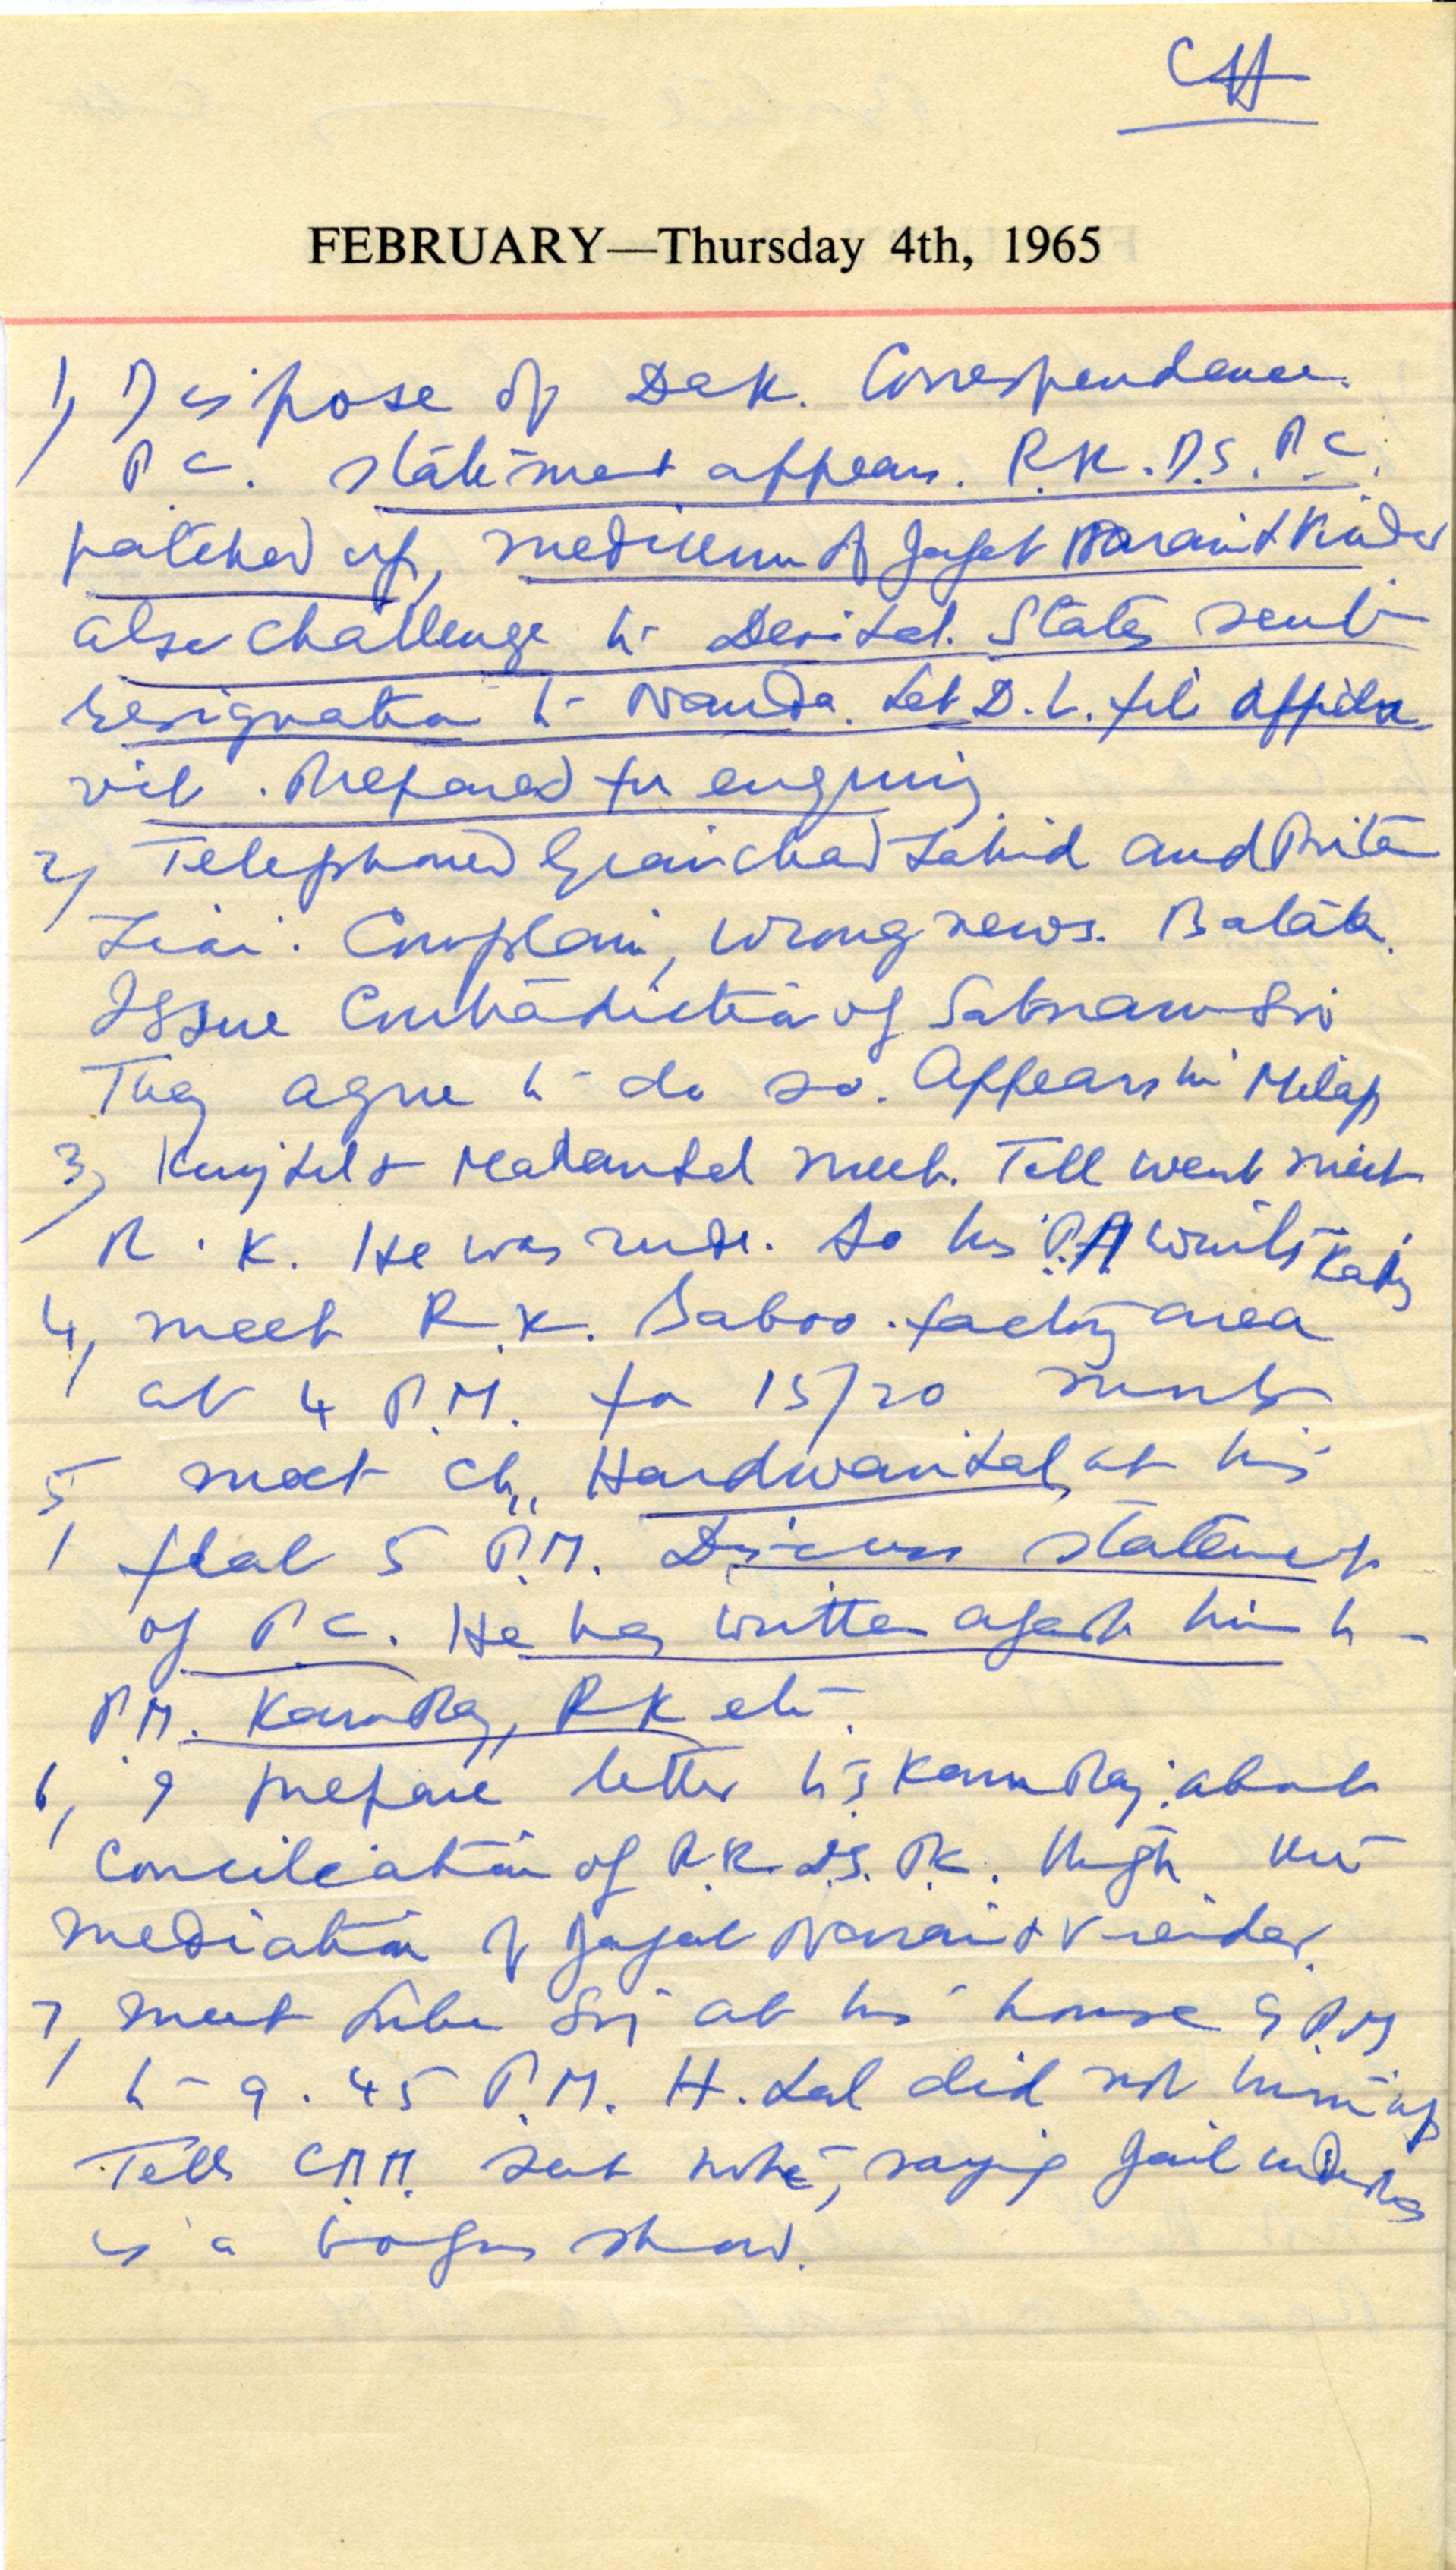 CH
FEBRUARY—Thursday 4th, 1965
1, Dispose of Dak. Correspondence.
P.C. statement appears. R.K. D.S. P.C.
patched up, medium of Jagat Narain &
also challenge to Devi Lal. States sent
resignation to Nanda. Let D.L. file affida
vit. Prepared for enquiry
2, Telephoned Gian chad Lahid and
Complain, wrong news. Batala.
Issue Contradiction of Satnam
They agree to do so. Appears in Milap
3, & Madanlal meet. Tell went meet
R.K. He was rude. So his P.A
4, meet R.K. Saboo. factory area
at 4 P.M. for 15/20 minuts
5 meet Ch,, Hardwari Lal, at his
flat 5 P.M. Discuss statement
of P.C. He has written agast him to
P.M. Kamraj, RK etc.
6, I prepare letter to S Kamraj. about
conciliation of R.K. D.S. P.C. through
mediation of Jagat Narain & Virender.
7, meet at his house 9 P.M
to 9.45 P.M. H. Lal did not
Tells C.M.M. sent note, saying Jail
is a bogus show.